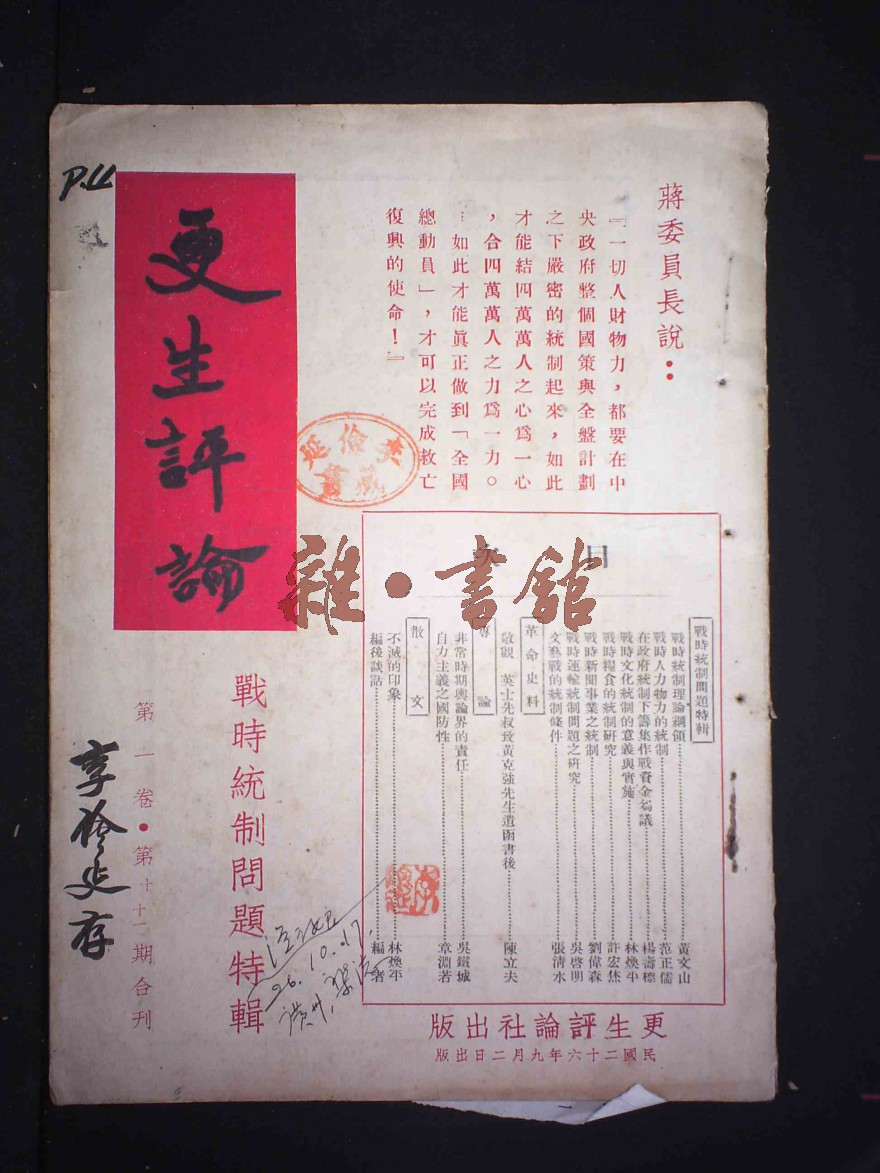 蔣委員長說：
『一切人財物力，都要在中
央政府整個國策與全盤計劃
之下嚴密的統制起來，如此
才能結四萬萬人之心爲一心
，合四萬萬人之力爲一力。
…如此才能眞正做到「全國
總動員」，才可以完成救亡
復興的使命！』
更生評論
P.11
戰時統制問題特輯
第一卷·第十十一期合刊
目
戰時統制問題特輯
戰時統制理論綱領 黃文山
戰時人力物力的統制 范正儒
在政府統制下籌集作戰資金芻議 楊壽標
戰時文化統制的意義與實施 林煥平
戰時糧食的統制研究 許宏烋
戰時新聞事業之統制 劉偉森
戰時運輸統制問題之研究 吳啓明
文藝戰的統制條件 張清水
革命史料
敬觀 英士先叔致黃克強先生遺函書後 陳立夫
專論
非常時期輿論界的責任 吳鐵城
自力主義之國防性 章淵若
散文
不滅的印象 林煥平
編後談話 編者
更生評論社出版
民國二十六年九月二日出版
雜·書舘
26.10.17.
廣州